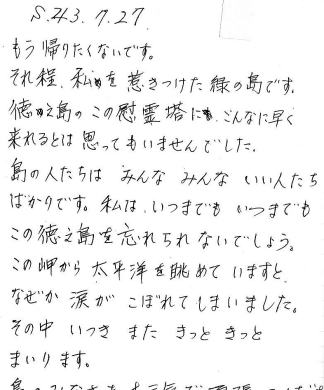 S.43.7.27.
もう帰りたくないです。
それ程、私を惹きつけた緑の島です。
徳之島のこの慰霊塔に、こんなに早く
来れるとは思ってもいませんでした。
島の人たちは みんな みんな いい人たち
ばかりです。私は、いつまでも いつまでも
この徳之島を忘れられないでしょう。
この岬から 太平洋を眺めて いますと
なぜか 涙が こぼれてしまいました。
その中 いつき また きっと きっと
まいります。